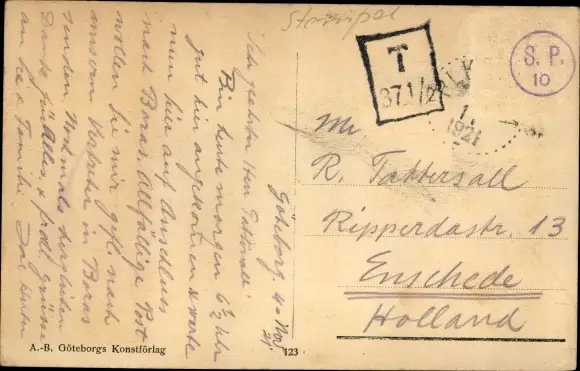 Stempel
T
37 1/2
S. P.
10
1.
1921
Mr.
R. Tattersall
Ripperdastr. 13
Enschede
Holland
Göteborg. 4. Nov.
21.
Sehr geehrter Herr Tattersall!
Bin heute morgen 6½ Uhr
gut hier angekommen & warte
nun hier auf Anschluss
nach Boras. Allfällige Post
wollen Sie mir gefl. nach
unserm Vertreter in Boras
senden. Nochmals herzlichen
Dank für Alles, & frdl. Grüsse
an Sie & Familie. Ihr
A.-B. Göteborgs Konstförlag
123